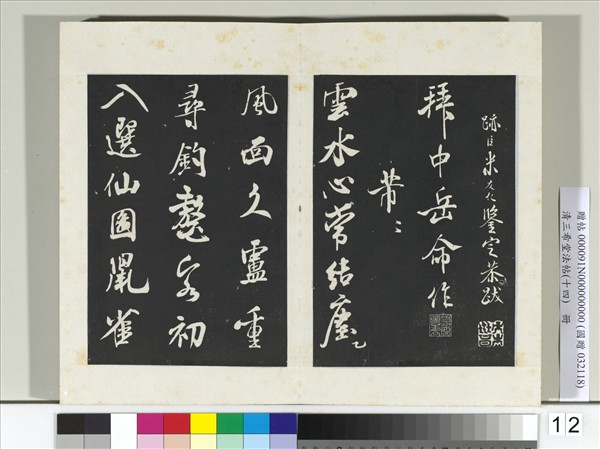 跡臣米友仁鑒定恭跋
拜中岳命作
芾
雲水心常結塵
風面久盧重
尋釣鼇客初
入選仙圖鼠雀
贈帖 000091N000000000 (國贈 032118)
清三希堂法帖(十四) 冊
12